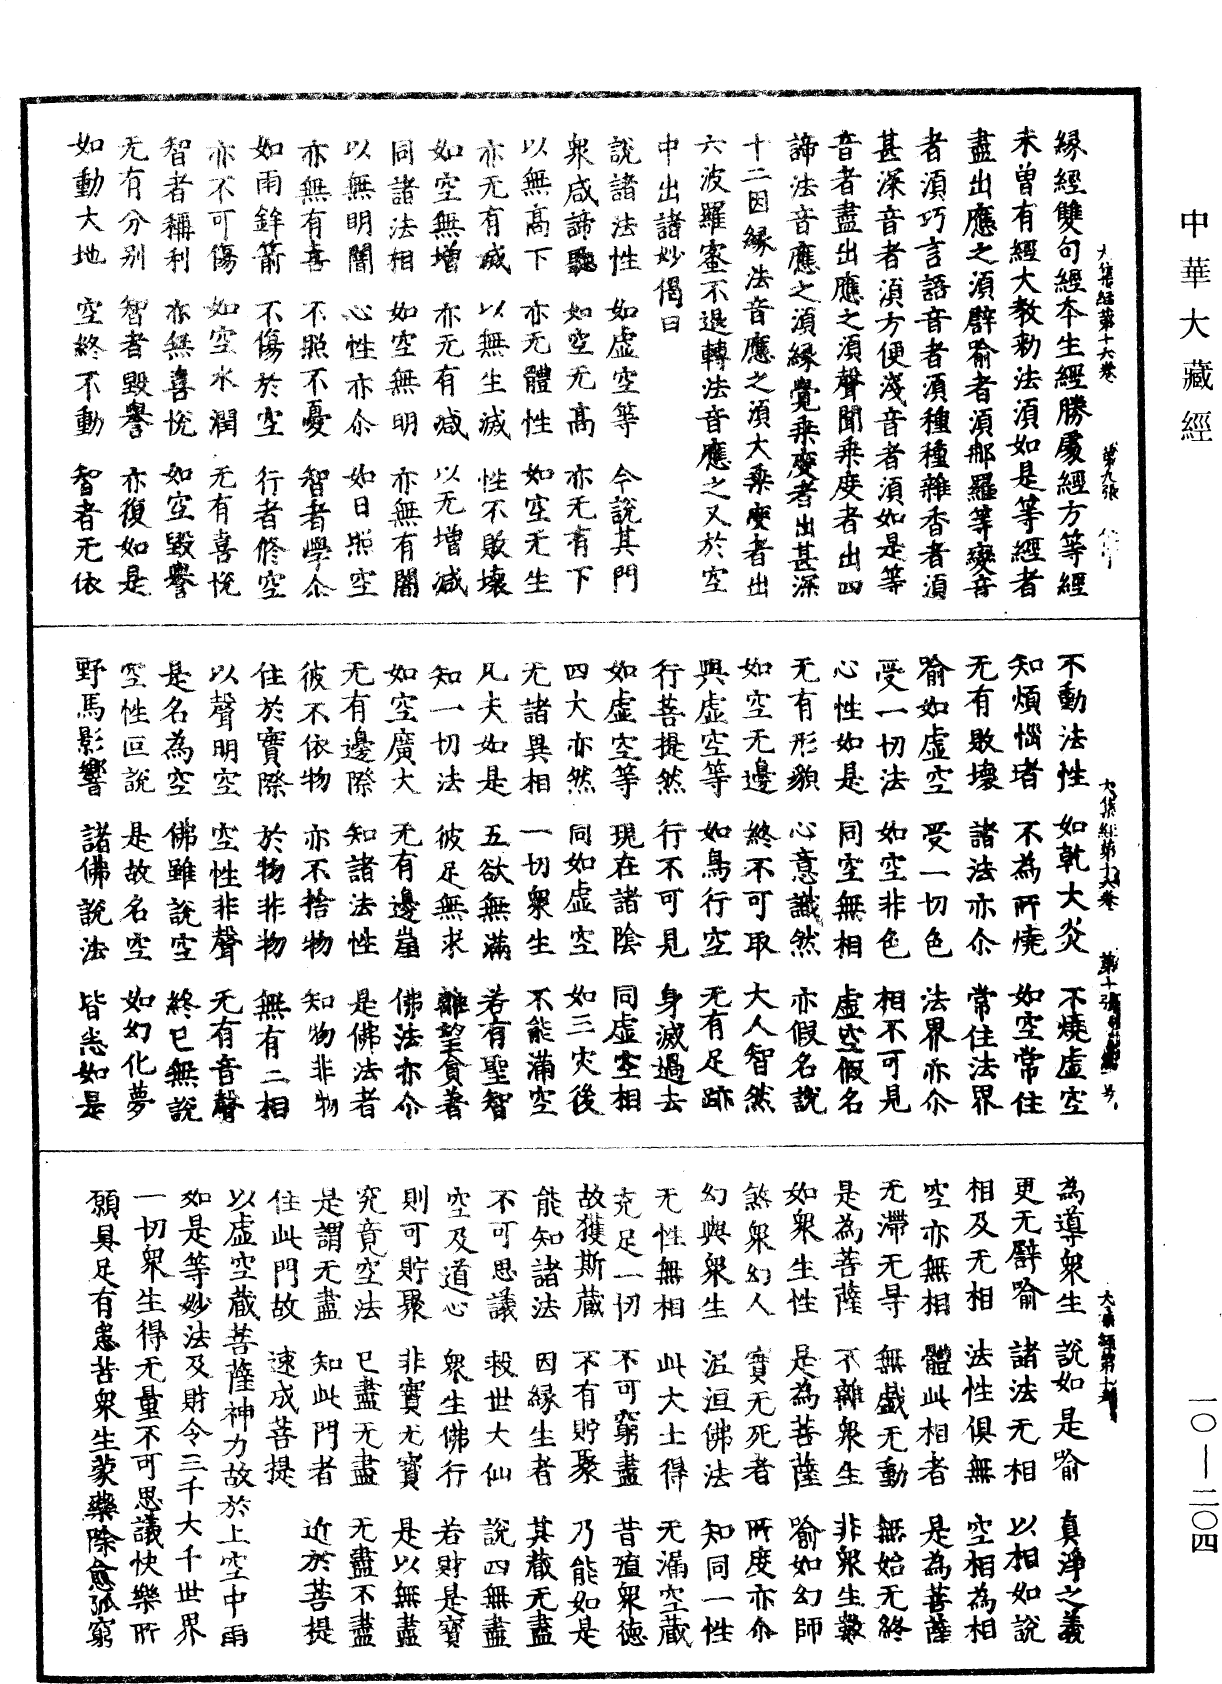 中華大藏經
縁經雙句經本生經勝處經方等經
未曾有經大教勑法須如是等經者
盡出應之須譬喻者須那羅等變音
者須巧言語音者須種種雜香者須
甚深音者須方便淺音者須如是等
音者盡出應之須聲聞乘度者出四
諦法音應之須緣覺乘度者出甚深
十二因緣法音應之須大乘度者出
六波羅蜜不退轉法音應之又於空
中出諸妙偈曰
說諸法性 如虛空等 今說其門
衆咸諦聽 如空无高 亦无有下
以無高下 亦无體性 如空无生
亦无有滅 以無生滅 性不敗壞
如空無增 亦无有減 以无增減
同諸法相 如空無明 亦無有闇
以無明闇 心性亦尒 如日照空
亦無有喜 不照不憂 智者學尒
如雨鉾箭 不傷於空 行者修空
亦不可傷 如空水潤 无有喜悅
智者稱利 亦無喜悅 如空毀譽
无有分别 智者毀譽 亦復如是
如動大地 空終不動 智者无依
不動法性 如乾大炎 不燒虛空
知煩惱者 不為所燒 如空常住
无有敗壞 諸法亦尒 常住法界
喻如虛空 受一切色 法界亦尒
受一切法 如空非色 相不可見
心性如是 同空無相 虛空假名
无有形貌 心意識然 亦假名說
如空无邊 終不可取 大人智然
與虛空等 如鳥行空 无有足跡
行菩提然 行不可見 身滅過去
如虛空等 現在諸陰 同虛空相
四大亦然 同如虛空 如三灾後
无諸異相 一切衆生 不能滿空
凡夫如是 五欲無滿 若有聖智
知一切法 彼足無求 離望貪著
如空廣大 无有邊崖 佛法亦尒
无有邊際 知諸法性 是佛法者
彼不依物 亦不捨物 知物非物
住於實際 於物非物 無有二相
以聲明空 空性非聲 无有音聲
是名為空 佛雖說空 終已無說
空性叵說 是故名空 如幻化夢
野馬影響 諸佛說法 皆悉如是
為導衆生 說如是喻 真淨之義
更无譬喻 諸法无相 以相如說
相及无相 法性俱無 空相為相
空亦無相 體此相者 是為菩薩
无滯无㝵 無戲无動 無始无終
是為菩薩 不離衆生 非衆生數
如衆生性 是為菩薩 喻如幻師
煞衆幻人 實无死者 所度亦尒
幻與衆生 泥洹佛法 知同一性
无性無相 此大士得 无漏空藏
充足一切 不可窮盡 昔殖衆德
故獲斯藏 不有貯聚 乃能如是
能知諸法 因緣生者 其藏无盡
不可思議 救世大仙 說四無盡
空及道心 衆生佛行 若財是寶
則可貯聚 非寶无寶 是以無盡
究竟空法 已盡无盡 无盡不盡
是謂无盡 知此門者 近於菩提
住此門故 速成菩提
以虛空藏菩薩神力故於上空中雨
如是等妙法及財令三千大千世界
一切衆生得无量不可思議快樂所
願具足有患苦衆生蒙藥除愈孤窮
一〇—二〇四